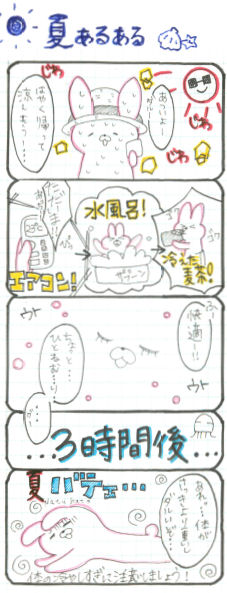 夏あるある
じわ
あっい…
じわ
はやく帰って
涼もう!…
じわ
ただいま!
水風呂!
エアコン!
冷えた
麦茶!
ふー
快適!!
ウト
ウト
ちょっと…
ひとねむり…
…3時間後…
夏バテェ…
あれ…体が
さっきより重い
体の冷やしすぎに注意しましょう!